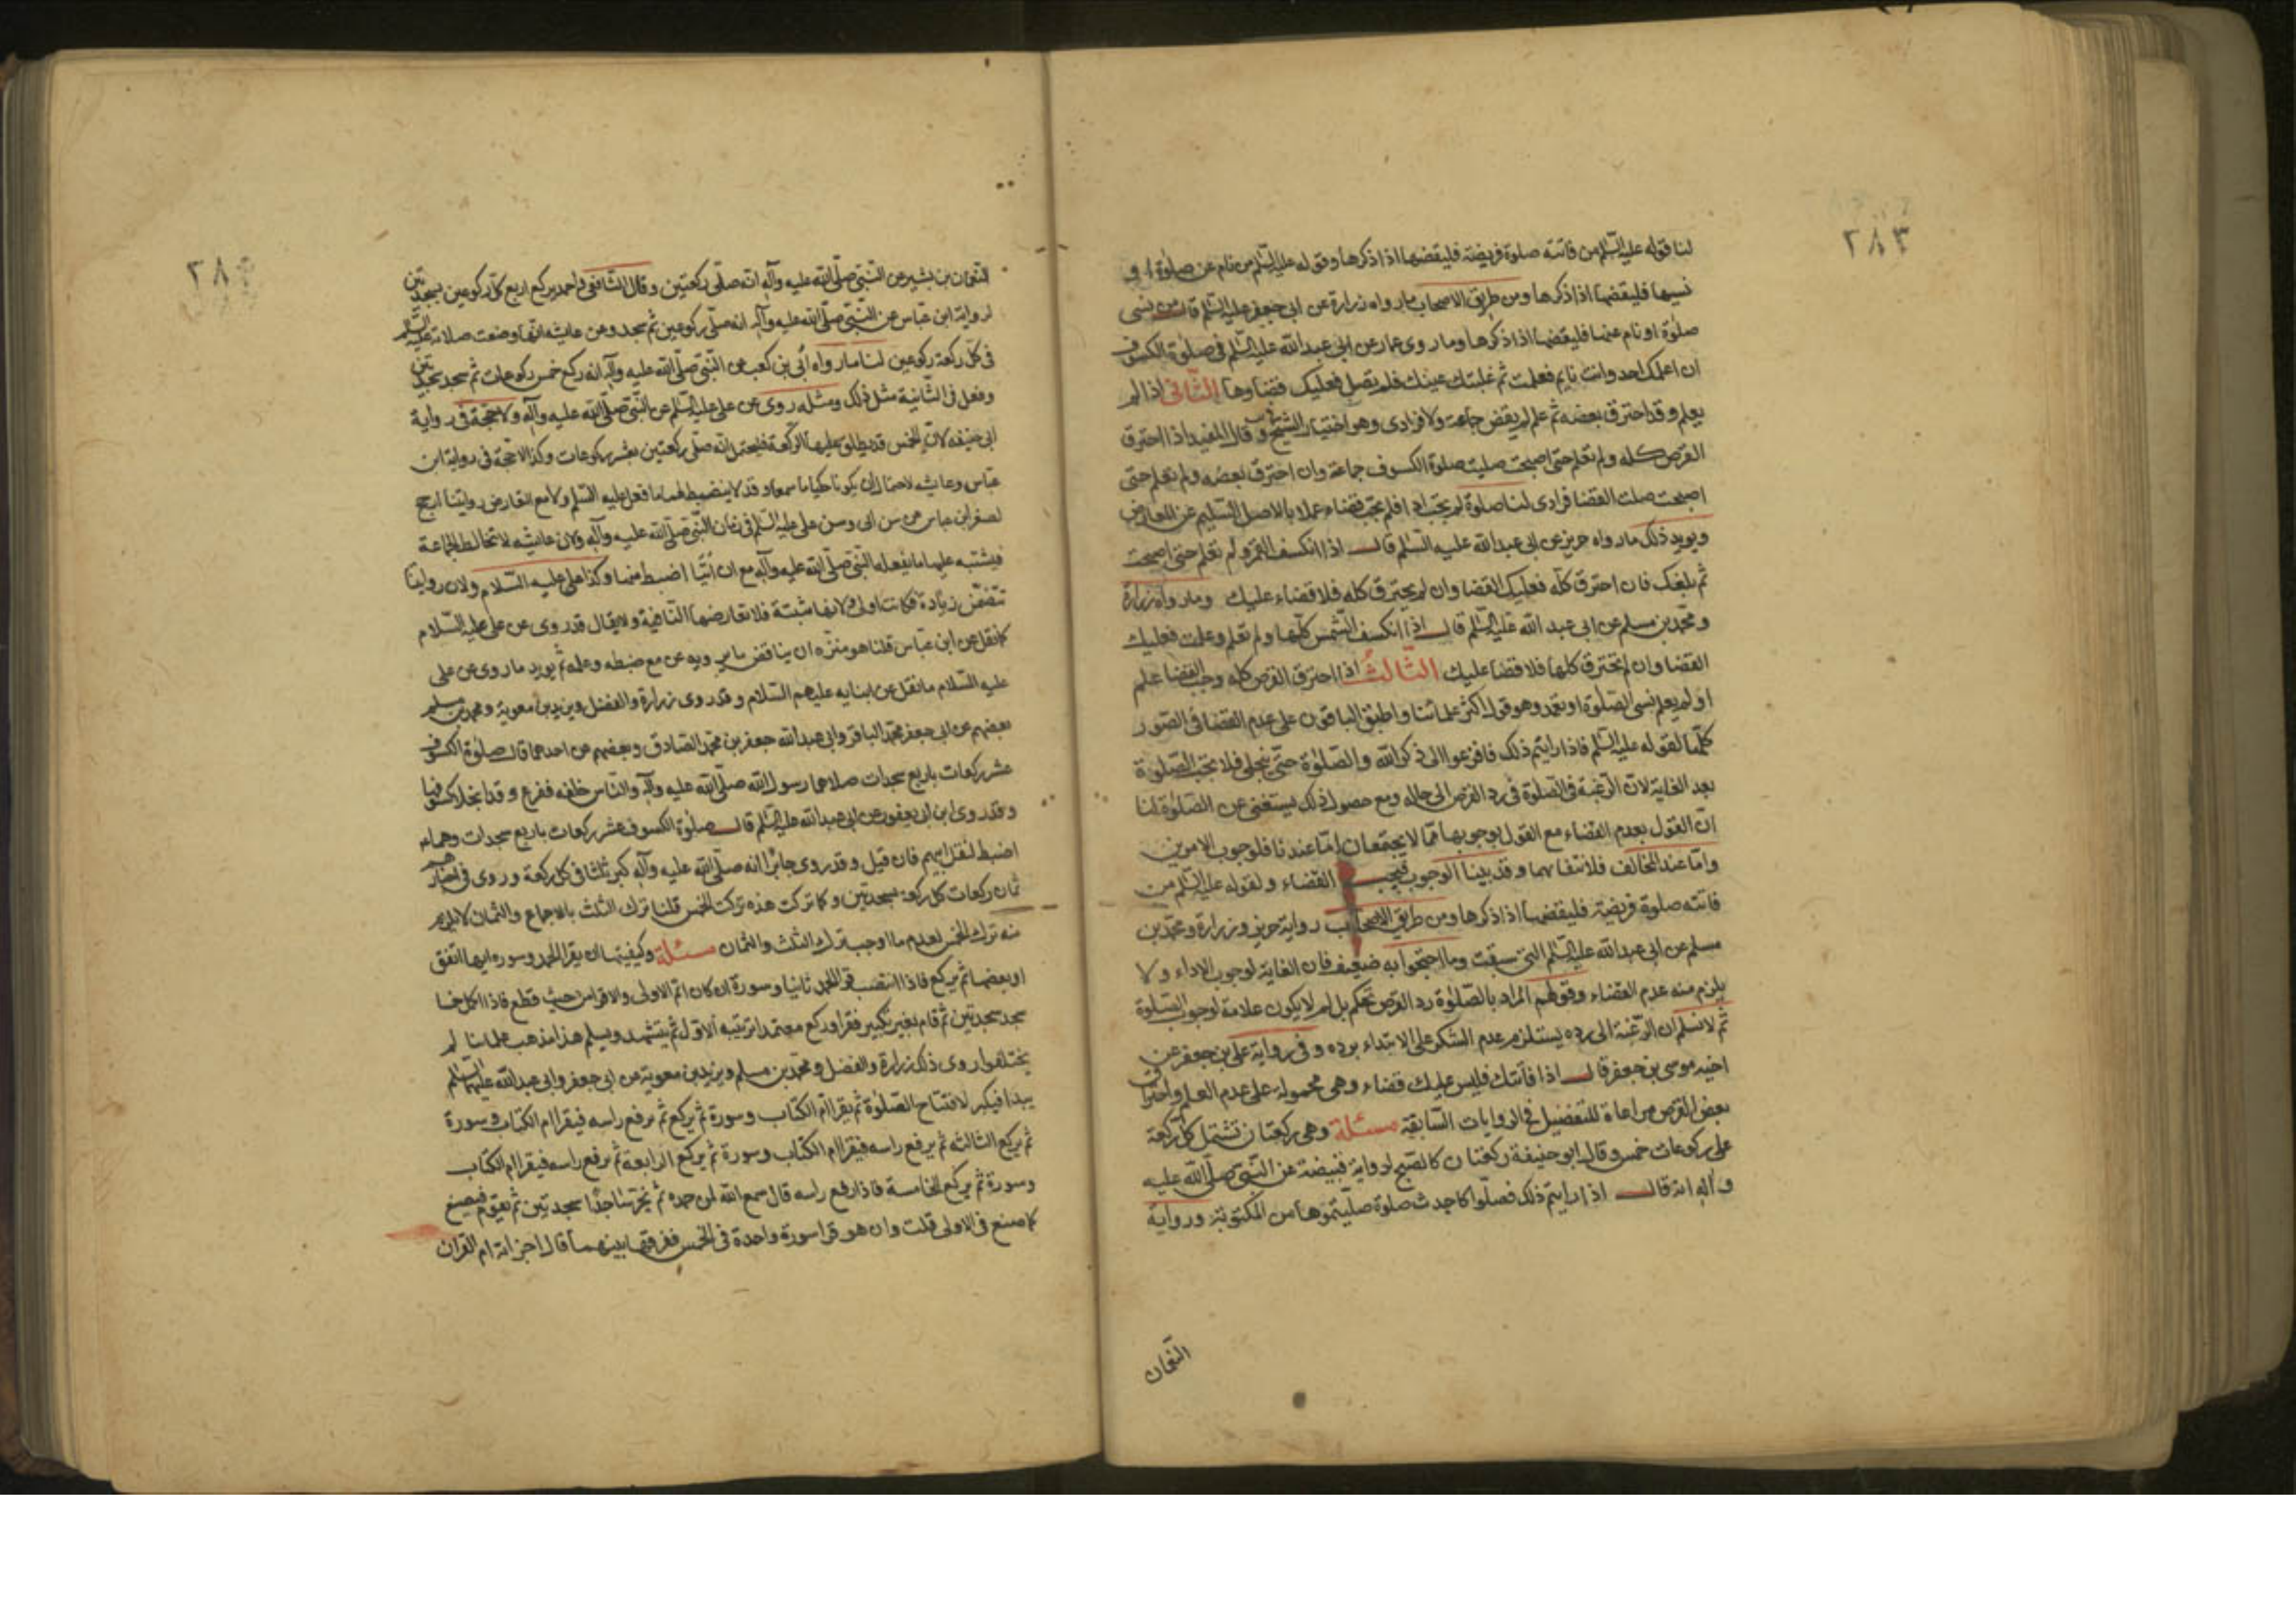 ٢٨٣
لنا قوله عليه السلم من فاتته صلوة فريضة فليقضها اذا ذكرها وقوله عليه السلم من نام عن صلوة او
نسيها فليقضها اذا ذكرها ومن طريق الاصحاب ما رواه زرارة عن ابى جعفر عليه السلم قال من نسى
صلوة او نام عنها فليقضها اذا ذكرها وما روى عمار عن ابى عبد الله عليه السلم فى صلوة الكسوف
ان اعلمك احد وانت نايم فعلمت ثم غلبتك عينك فلم تصل فعليك قضاوها الثانى اذا لم
يعلم وقد احترق بعضه ثم علم لم يقض جماعة ولا فرادى وهو اختيار الشيخ وقال المفيد اذا احترق
القرص كله ولم تعلم حتى اصبحت صليت صلوة الكسوف جماعة وان احترق بعضه ولم تعلم حتى
اصبحت صليت القضا فرادى لنا صلوة لم تجب اداء فلم تجب قضاء عملا بالاصل السليم عن المعارض
ويويد ذلك ما رواه حريز عن ابى عبد الله عليه السلم قال اذا انكسف القمر ولم تعلم حتى اصبحت
ثم بلغك فان احترق كله فعليك القضا وان لم يحترق كله فلا قضاء عليك وما رواه زرارة
ومحمد بن مسلم عن ابى عبد الله عليه السلم قال اذا انكسف الشمس كلها ولم تعلم وعلمت فعليك
القضا وان لم تحترق كلها فلا قضا عليك الثالث اذا احترق القرص كله وجب القضا علم
او لم يعلم نسى الصلوة او تعمد وهو قول اكثر علمائنا واطبق الباقون على عدم القضا فى الصور
كلها لقوله عليه السلم فاذا رايتم ذلك فافزعوا الى ذكر الله والصلوة حتى ينجلى فلا تجب الصلوة
بعد الغاية لان الرغبة فى الصلوة فى رد القرص الى حاله ومع حصول ذلك يستغنى عن الصلوة لنا
ان القول بعدم القضاء مع القول بوجوبها مما لا يجتمعان اما عندنا فلوجوب الامرين
واما عند المخالف فلانتفائهما وقد بينا الوجوب فيجب القضاء ولقوله عليه السلم من
فاتته صلوة فريضة فليقضها اذا ذكرها ومن طريق الاصحاب رواية حريز وزرارة ومحمد بن
مسلم عن ابى عبد الله عليه السلم التى سبقت وما احتجوا به ضعيف فان الغاية لوجوب الاداء ولا
يلزم منه عدم القضاء وقولهم المراد بالصلوة رد القرص تحكم بل لم لا يكون علامة لوجوب الصلوة
ثم لا نسلم ان الرغبة الى رده يستلزم عدم الشكر على الابتداء برده وفى رواية على بن جعفر عن
اخيه موسى بن جعفر قال اذا فاتتك فليس عليك قضاء وهى محمولة على عدم العلم واحتراق
بعض القرص مراعاة للتفضيل فى الروايات السابقة مسئلة وهى ركعتان تشتمل كل ركعة
على ركوعات خمس وقال ابو حنيفة ركعتان كالصبح لرواية قبيضة عن النبى صلى الله عليه
وآله انه قال اذا رايتم ذلك فصلوا كاحدث صلوة صليتموها من المكتوبة ورواية
النعمان
٢٨٤
النعمان بن بشير عن النبى صلى الله عليه وآله انه صلى ركعتين وقال الشافعى واحمد يركع اربع كل ركوعين بسجدتين
لرواية ابن عباس عن النبى صلى الله عليه وآله انه صلى ركوعين ثم سجد وعن عايشه انها وصفت صلاته عليه السلم
فى كل ركعة ركوعين لنا ما رواه ابى بن كعب عن النبى صلى الله عليه وآله انه ركع خمس ركوعات ثم سجد سجدتين
وفعل فى الثانية مثل ذلك ومثله روى عن على عليه السلم عن النبى صلى الله عليه وآله ولا حجة فى رواية
ابى حنيفه لان الخمس قد يطلق عليها الركعة فيحتمل انه صلى ركعتين بعشر ركوعات وكذا لا حجة فى رواية ابن
عباس وعايشه لاحتمال ان يكونا حكيا ما سمعاه وقد لا ينضبط لهما ما فعل عليه السلم ولا مع التعارض روايتنا ارجح
لصغر ابن عباس عن سن ابى وسن على عليه السلم فى زمان النبى صلى الله عليه وآله ولان عايشه لا تخالط الجماعة
فيشتبه عليها ما يفعله النبى صلى الله عليه وآله مع ان ابيا اضبط منها وكذا على عليه السلام ولان روايتنا
تتضمن زيادة فكانت اولى ولانها مثبتة فلا تعارضها النافية ولا يقال قد روى عن على عليه السلام
كما نقل عن ابن عباس قلنا هو منزه ان يناقض ما يرويه عن مع ضبطه وعلمه ثم يويد ما روى عن على
عليه السلام ما نقل عن ابنايه عليهم السلام وقد روى زرارة والفضل وبريد بن معوية ومحمد بن مسلم
بعضهم عن ابى جعفر محمد الباقر وابى عبد الله جعفر بن محمد الصادق وبعضهم عن احدهما قال صلوة الكسوف
عشر ركعات باربع سجدات صلاها رسول الله صلى الله عليه وآله والناس خلفه ففرغ وقد انجلا كسوفها
وقد روى ابن ابى يعفور عن ابى عبد الله عليه السلم قال صلوة الكسوف عشر ركعات باربع سجدات وهما
اضبط لنقل ابيهم فان قيل وقد روى جابر انه صلى الله عليه وآله كبر ثلثا فى كل ركعة وروى فى اخباركم
ثمان ركعات كل ركعة بسجدتين وكما تركت هذه تركت الخمس قلنا ترك الثلث بالاجماع والثمان لا يلزم
منه ترك الخمس لعدم ما اوجب ترك الثلث والثمان مسئلة وكيفيتها ان يقرا الحمد وسورة ايها اتفق
او بعضها ثم يركع فاذا انتصب قرا الحمد ثانيا وسورة ان كان اتم الاولى والا قرا من حيث قطع فاذا اكمل خمسا
سجد سجدتين ثم قام بغير تكبير فقرا وركع معتمدا ترتيبه الاول ثم يتشهد ويسلم هذا مذهب علمائنا لم
يختلفوا روى ذلك زرارة والفضل ومحمد بن مسلم وبريد بن معوية عن ابى جعفر وابى عبد الله عليهما السلم
يبدا فيكبر لافتتاح الصلوة ثم يقرا ام الكتاب وسورة ثم يركع ثم يرفع راسه فيقرا ام الكتاب وسورة
ثم يركع الثالثه ثم يرفع راسه فيقرا ام الكتاب وسورة ثم يركع الرابعة ثم يرفع راسه فيقرا ام الكتاب
وسورة ثم يركع الخامسة فاذا رفع راسه قال سمع الله لمن حمده ثم يخر ساجدا سجدتين ثم يقوم فيصنع
كما صنع فى الاولى قلت وان هو قرا سورة واحدة فى الخمس ففرقها بينهما قال اجزاته ام القران